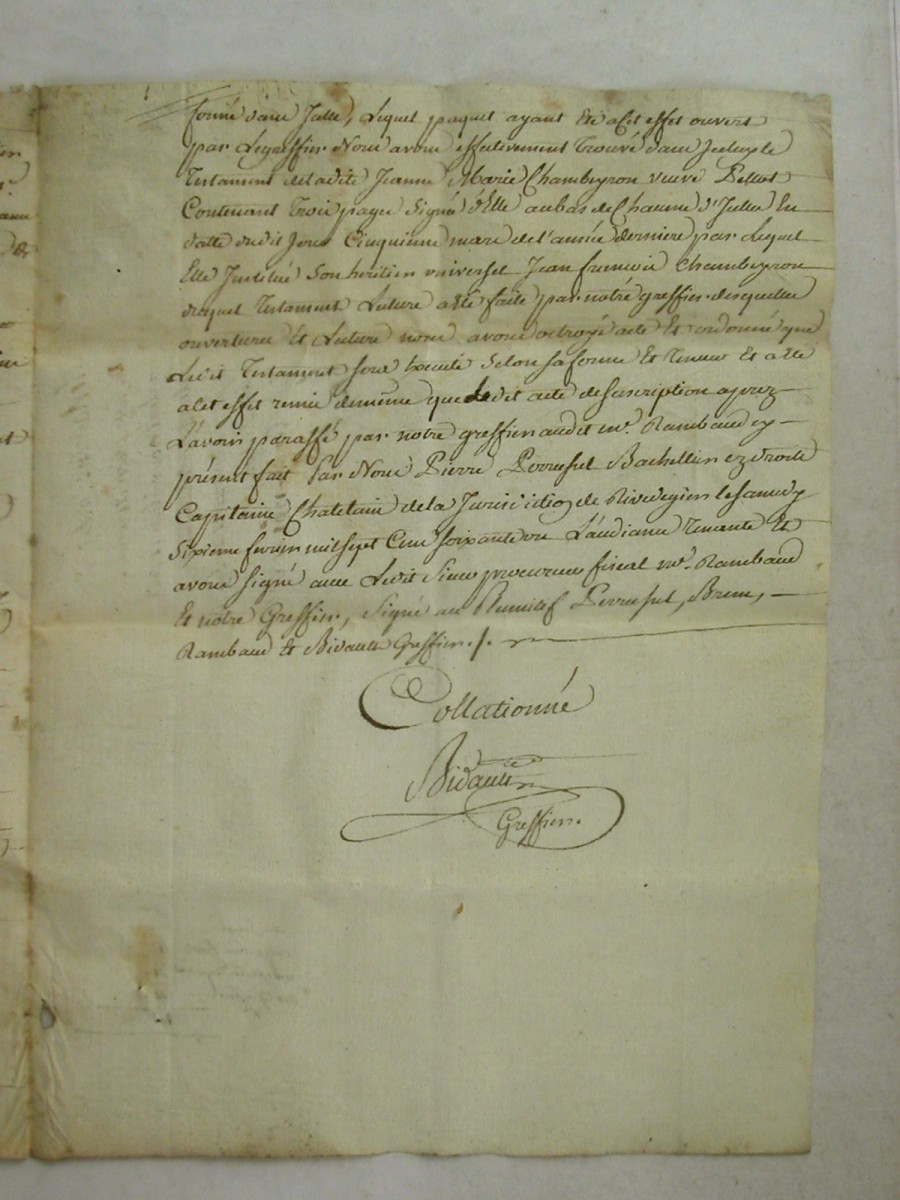 formé dans Jcelle, Lequel paquet ayant été a cet effet ouvert
par Le greffier Nous avons effectivement Trouvé dans Jceluy le
Testament de la dite Jeanne Marie Chambeyron veuve
Contenant Trois pages Signée d'Elle au bas de Chacune d'Jcelles En
datte du dit Jour Cinquieme mars de l'année derniere par Lequel
Elle Justitué Son heritier universel Jean françois Chambeyron
duquel Testament Lecture a été faite par notre greffier desquelles
ouverture Et Lecture nous avons octroyé acte Et ordonné que
Ledit Testament sera Executé Selon sa forme Et Teneur Et a été
a cet effet remis de meme que Ledit acte de Suscription aprez
L'avoir paraffé par notre greffier audit me. Rambaud cy
présent fait Par Nous Pierre Perrussel Bachellier ez droits
Capitaine Chatelain de la Jurisdiction de Rivedegier le Samedy
Sixieme fevrier mil Sept Cent Soixante un L'audiance Tenante Et
avons Signé avec Ledit Sieur procureur fiscal me. Rambaud
Et notre Greffier, Signé au Plumitif Perrussel, Brun,
Rambaud Et Bidault Greffier./.
Collationné
Bidault
Greffier.